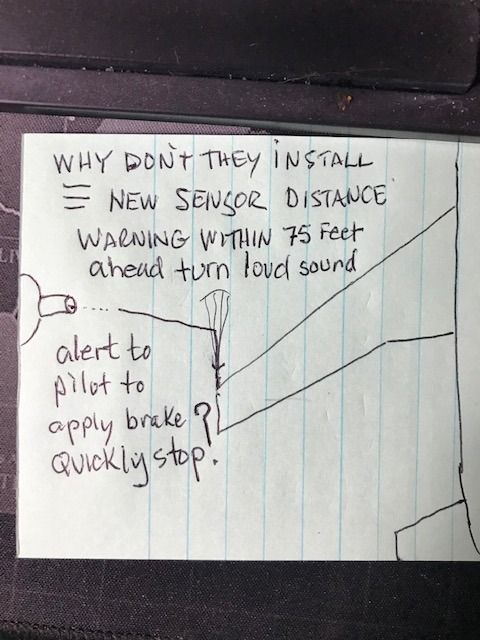 WHY DON'T THEY INSTALL
NEW SENSOR DISTANCE
WARNING WITHIN 75 Feet
ahead turn loud sound
alert to
pilot to
apply brake ?
Quickly stop.